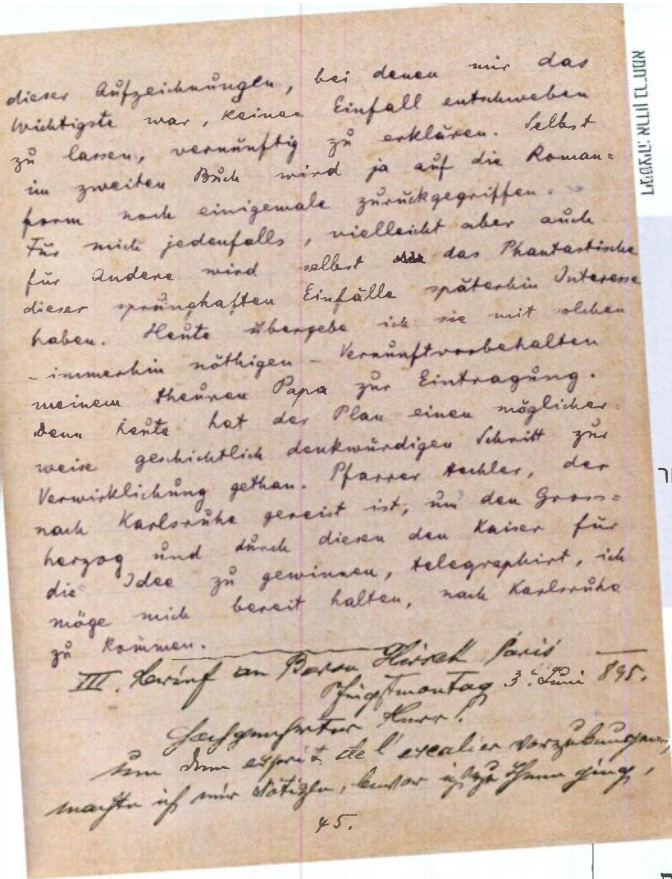 dieser Aufzeichnungen, bei denen mir das
Wichtigste war, keinen Einfall entschweben
zu lassen, vernünftig zu erklären. Selbst
im zweiten Buch wird ja auf die Roman=
form noch einigemale zurückgegriffen.
Für mich jedenfalls, vielleicht aber auch
für Andere wird selbst das Phantastische
dieser sprunghaften Einfälle späterhin Interesse
haben. Heute übergebe ich sie mit solchen
- immerhin nöthigen - Vernunftvorbehalten
meinem theuren Papa zur Eintragung.
Denn heute hat der Plan einen möglicher
weise geschichtlich denkwürdigen Schritt zur
Verwirklichung gethan. Pfarrer Hechler, der
nach Karlsruhe gereist ist, um den Gross=
herzog und durch diesen den Kaiser für
die Idee zu gewinnen, telegraphirt, ich
möge mich bereit halten, nach Karlsruhe
zu kommen.
III. Brief an Baron Hirsch Paris
Pfingstmontag 3. Juni 895.
Hochgeehrter Herr!
Um dem esprit de l'escalier vorzubeugen,
machte ich mir Notizen, bevor ich zu Ihnen ging,
45.